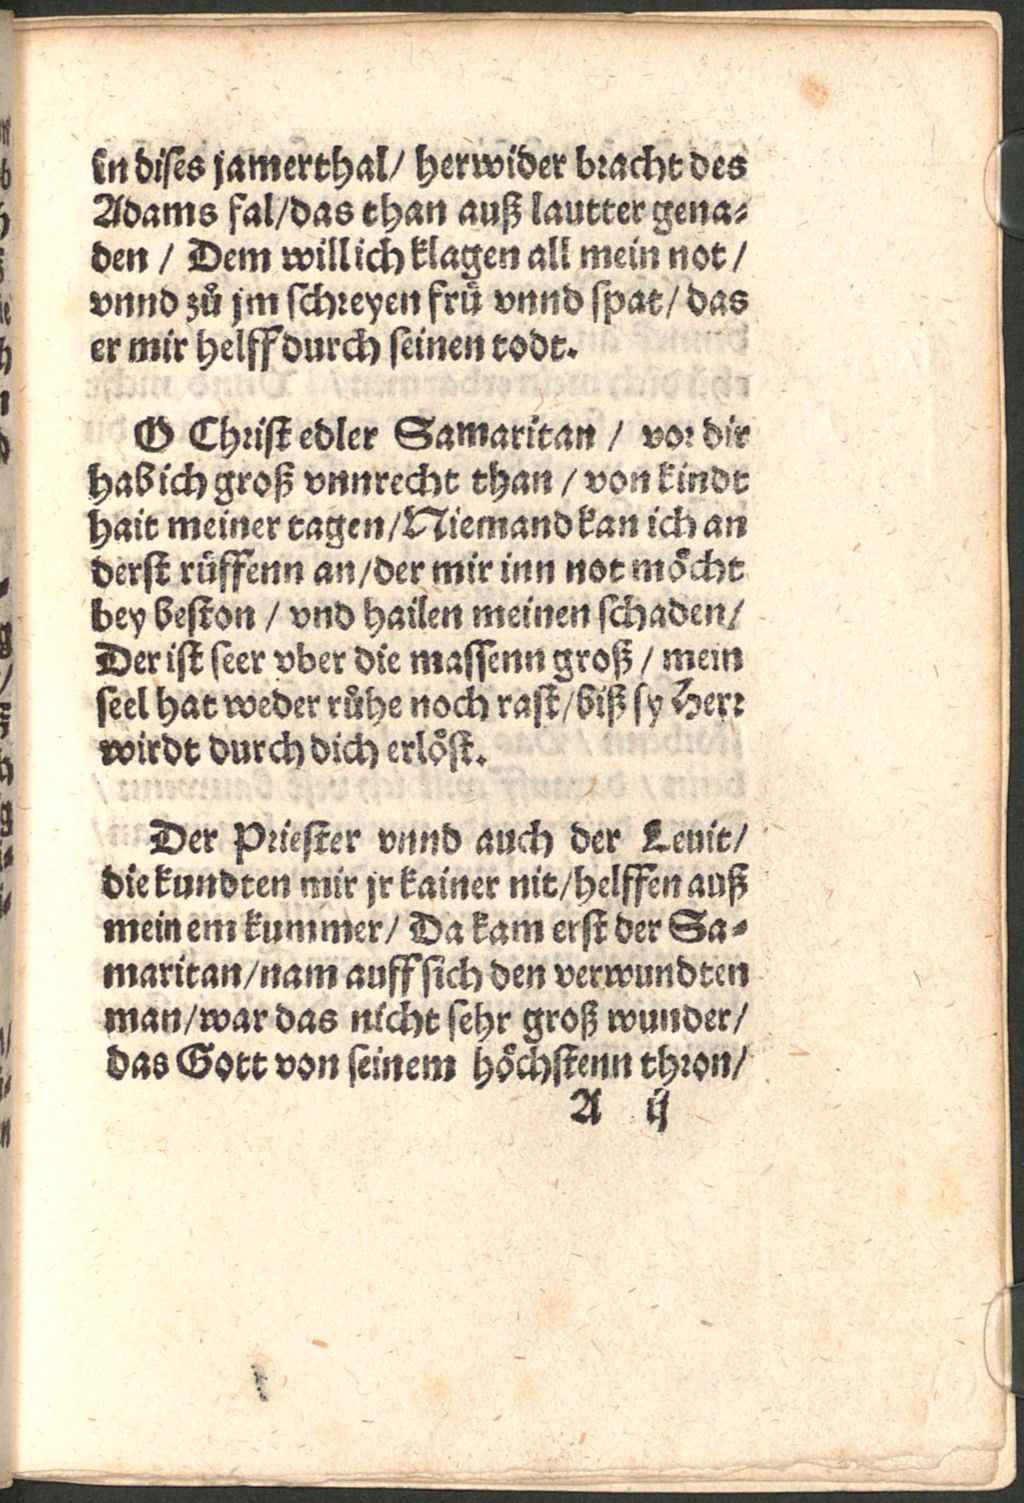 in dises jamerthal/ herwider bracht des
Adams fal/das than auß lautter gena⸗
den / Dem will ich klagen all mein not /
vnnd zuͦ jm schreyen fruͤ vnnd spat/ das
er mir helff durch seinen todt.
O Christ edler Samaritan / vor dir
hab ich groß vnnrecht than / von kindt
hait meiner tagen/Niemand kan ich an
derst ruͤffenn an/der mir inn not moͤcht
bey beston / vnd hailen meinen schaden/
Der ist seer vber die massenn groß / mein
seel hat weder ruͦhe noch rast/biß sy Herr
wirdt durch dich erloͤst.
Der Priester vnnd auch der Leuit/
die kundten mir jr kainer nit/helffen auß
meinem kummer/ Da kam erst der Sa⸗
maritan/nam auff sich den verwundten
man/war das nicht sehr groß wunder/
das Gott von seinem hoͤchstenn thron/
A ij